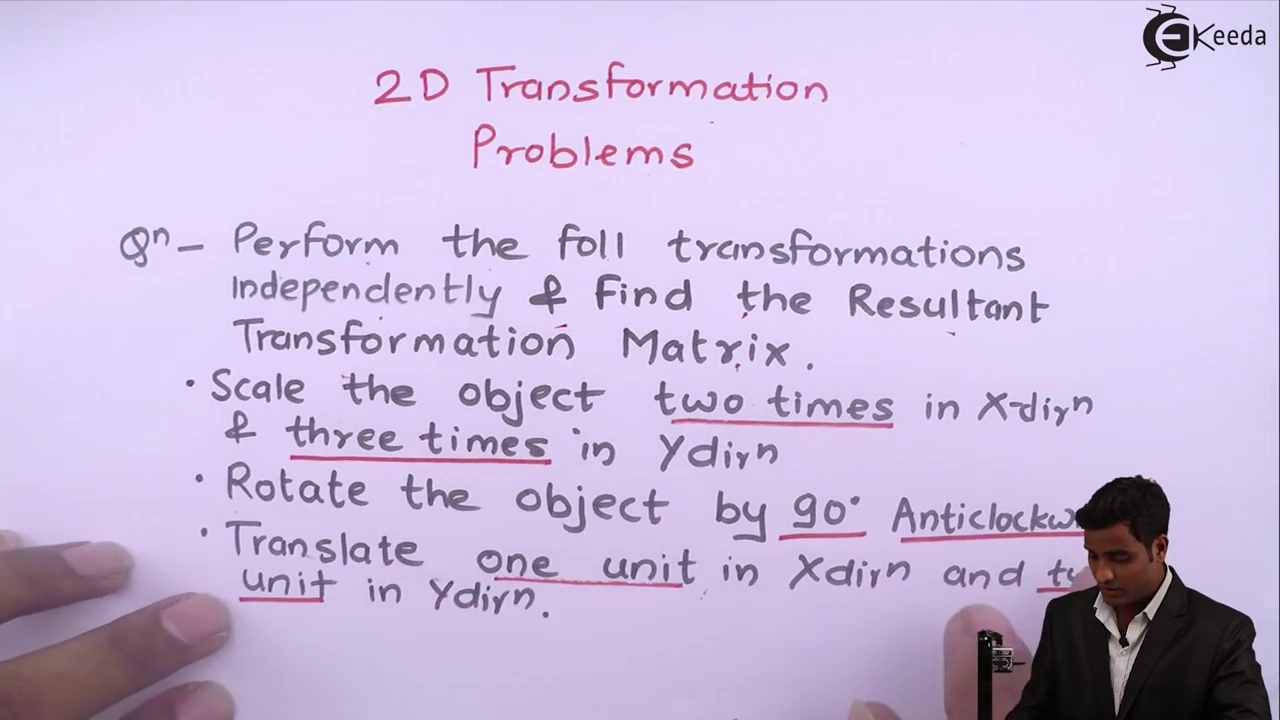 EKeeda
2D Transformation
Problems
Qn - Perform the foll transformations
Independently & Find the Resultant
Transformation Matrix.
• Scale the object two times in X-dirn
& three times in Ydirn
• Rotate the object by 90° Anticlockw
• Translate one unit in Xdirn and
unit in Ydirn.